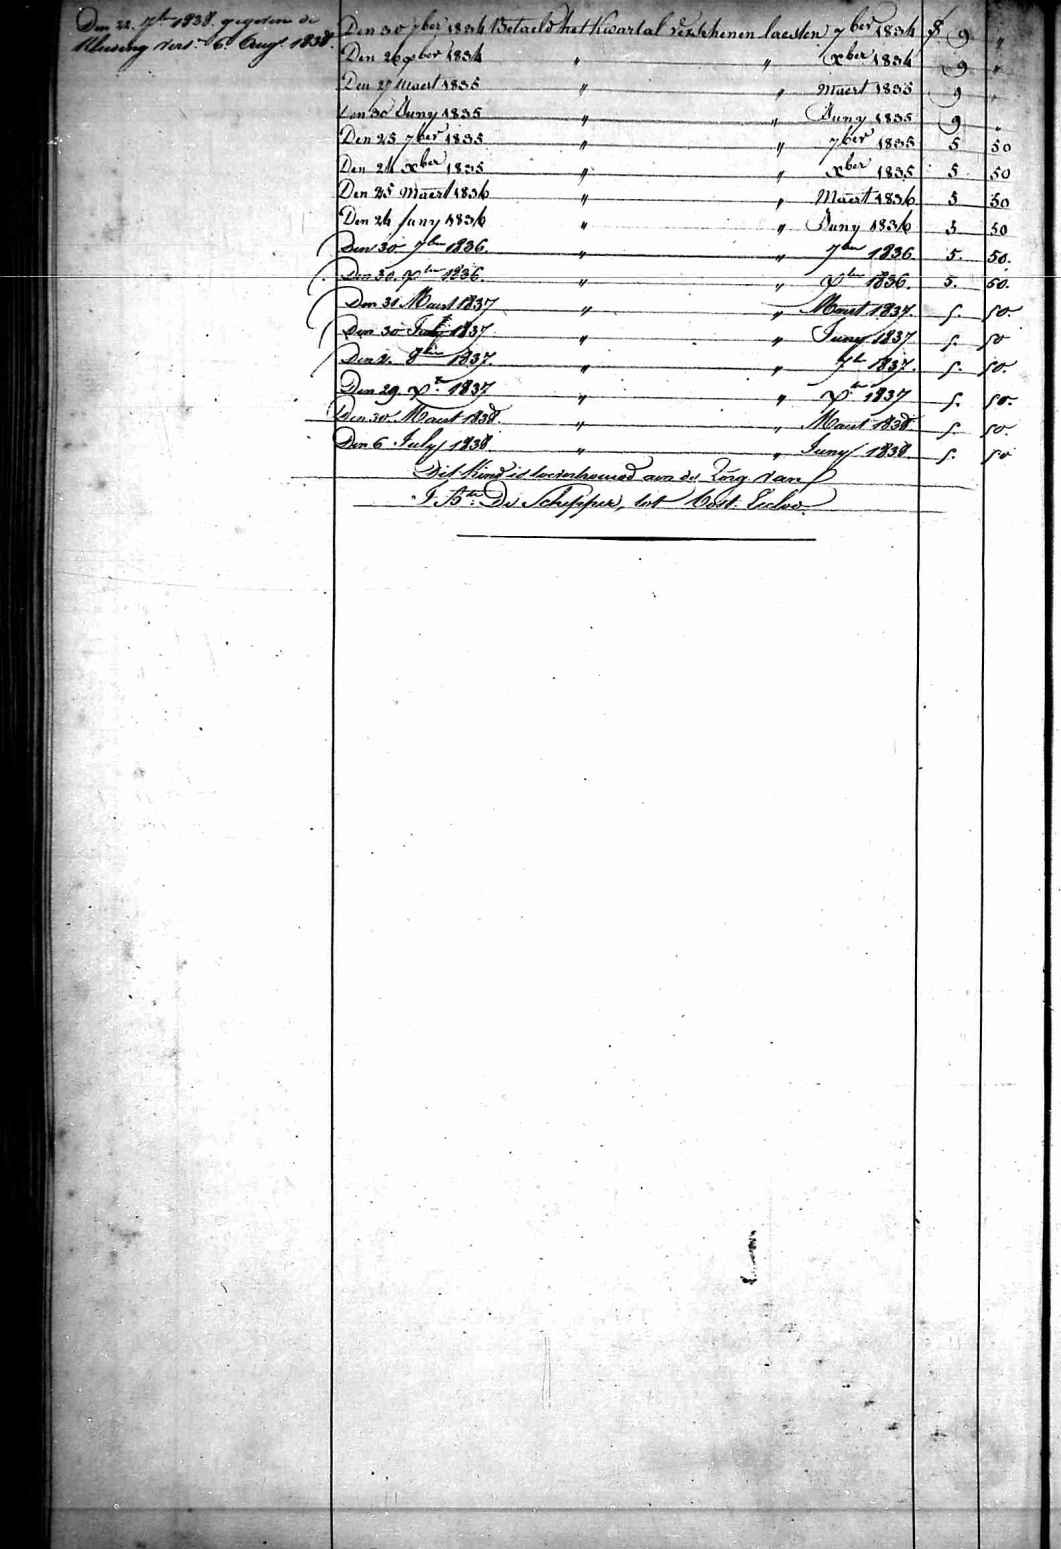 Den 22. 7br 1838. gegeven de
Kleeding vers. 6 Augt 1838.
Den 30 7ber 1834 Betaeld het Kwartal verschenen laesten 7ber 1834 f 9 "
Den 26 xber 1834 " " xber 1834 9 "
Den 27 Maert 1835 " " Maert 1835 9 "
Den 30 Juny 1835 " " Juny 1835 9 "
Den 25 7ber 1835 " " 7ber 1835 5 50
Den 24 xber 1835 " " xber 1835 5 50
Den 25 Maert 1836 " " Maert 1836 5 50
Den 24 Juny 1836 " " Juny 1836 5 50
Den 30 7ber 1836. " " 7ber 1836 5. 50.
Den 30. xber 1836. " " xber 1836. 5. 50.
Den 31 Maert 1837 " " Maert 1837. 5. 50
Den 30 1837. " " Juny 1837 5. 50
Den 2. 8ber 1837. " " 7br 1837. 5. 50.
Den 29. xr 1837 " " xr 1837 5. 50.
Den 30. Maert 1838. " " Maert 1838 5. 50.
Den 6 July 1838. " " Juny 1838 5. 50
Dit Kind is toevertrouwd aen de Zorg van
J. Bte De Schepper, tot Oost. Eecloo.